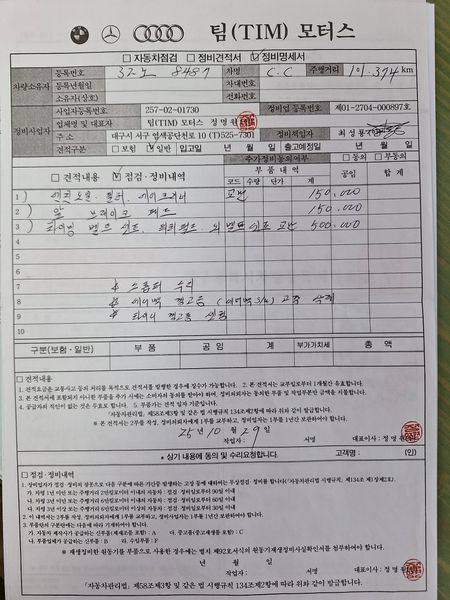 팀(TIM) 모터스
□ 자동차점검 □ 정비견적서 ☑ 정비명세서
차량소유자 등록번호 32노 8487 차명 C.C 주행거리 101,374 km
등록년월일 차대번호
소유자(상호) 전화번호
정비사업자 사업자등록번호 257-02-01730 정비업 등록번호 제01-2704-000897호
업체명 및 대표자 팀(TIM) 모터스 정 명 원
주 소 대구시 서구 염색공단천로 10 (T)525-7301 정비책임자 최성용
견적구분 □ 보험 ☑ 일반 입고일 년 월 일 출고예정일 년 월 일
□ 견적내용 ☑ 점검·정비내역
추가정비동의여부 □ 동의 □ 부동의
부 품 내 역 공임 합 계
코드 수량 단가 계
1 엔진오일, 필터, 에어크리너 교환 150,000
2 앞 브레이크 패드 150,000
3 타이밍 벨트 세트, 워터펌프, 외 벨트 세트 교환 500,000
4
5
6
7 * 수리
8 * 에어백 경고등 (에어백 ) 고장 삭제
9 * 타이어 경고등
10
구분(보험·일반) 부 품 공 임 계 부가가치세 총 액
□ 견적내용
1. 견적요금은 교통사고 등의 처리를 목적으로 견적서를 발행한 경우에 징수가 가능합니다. 2. 본 견적서는 교부일로부터 1개월간 유효합니다.
3. 본 견적서에 포함되지 아니한 부품을 추가 정비 시에는 소비자의 동의를 받아야 하며, 정비의뢰자에게는 동의한 부품 및 작업부분만 금액을 시불합니다.
4. 공급가의 차선이 없는 것은 무효로 합니다. 5. 부품가는 견적 일자 기준입니다.
「자동차관리법」 제58조제3항 및 같은 법 시행규칙 134조제2항에 따라 위와 같이 발급합니다.
※ 본 견적서는 2부를 작성, 정비의뢰자에게 1부를 교부하고, 정비업자는 1부를 1년간 보관하여야 합니다.
25년 10월 29일
작업자 : 서명 대표이사 : 정 명 원
* 상기 내용에 동의 및 수리요청합니다. 고객명 : (인)
□ 점검·정비내역
1. 정비업자가 점검·정비의 잘못으로 다음 구분에 따른 기간에 발생하는 고장 등에 대하여는 무상점검·정비를 합니다(「자동차관리법 시행규칙」 제134조 제1항제2호).
가. 차령 1년 미만 또는 주행거리 2만킬로미터 이내의 자동차 : 점검·정비일로부터 90일 이내
나. 차령 3년 미만 또는 주행거리 6만킬로미터 이내의 자동차 : 점검·정비일로부터 60일 이내
다. 차령 3년 이상 또는 주행거리 6만킬로미터 이상의 자동차 : 점검·정비일로부터 30일 이내
2. 이 내역서는 2부를 작성, 정비의뢰자에게 1부를 교부하고, 정비사업자는 1부를 1년간 보관하여야 합니다.
3. 부품란의 구분란에는 다음에 따라 기재하여야 합니다.
가. 자동차 제작사가 공급하는 신부품(재제조품 포함) : A 다. 중고품(중고재생품 포함) : C
나. 부품업체에서 공급하는 신부품 : B 라. 수입부품 : F
※ 재생정비한 원동기를 부품으로 사용한 경우에는 별지 제92호서식의 원동기재생정비사실확인서를 첨부하여야 합니다.
년 월 일
작업자 : 서명 대표이사 : 정 명 원
「자동차관리법」 제58조제3항 및 같은 법 시행규칙 제134조제2항에 따라 위와 같이 발급합니다.